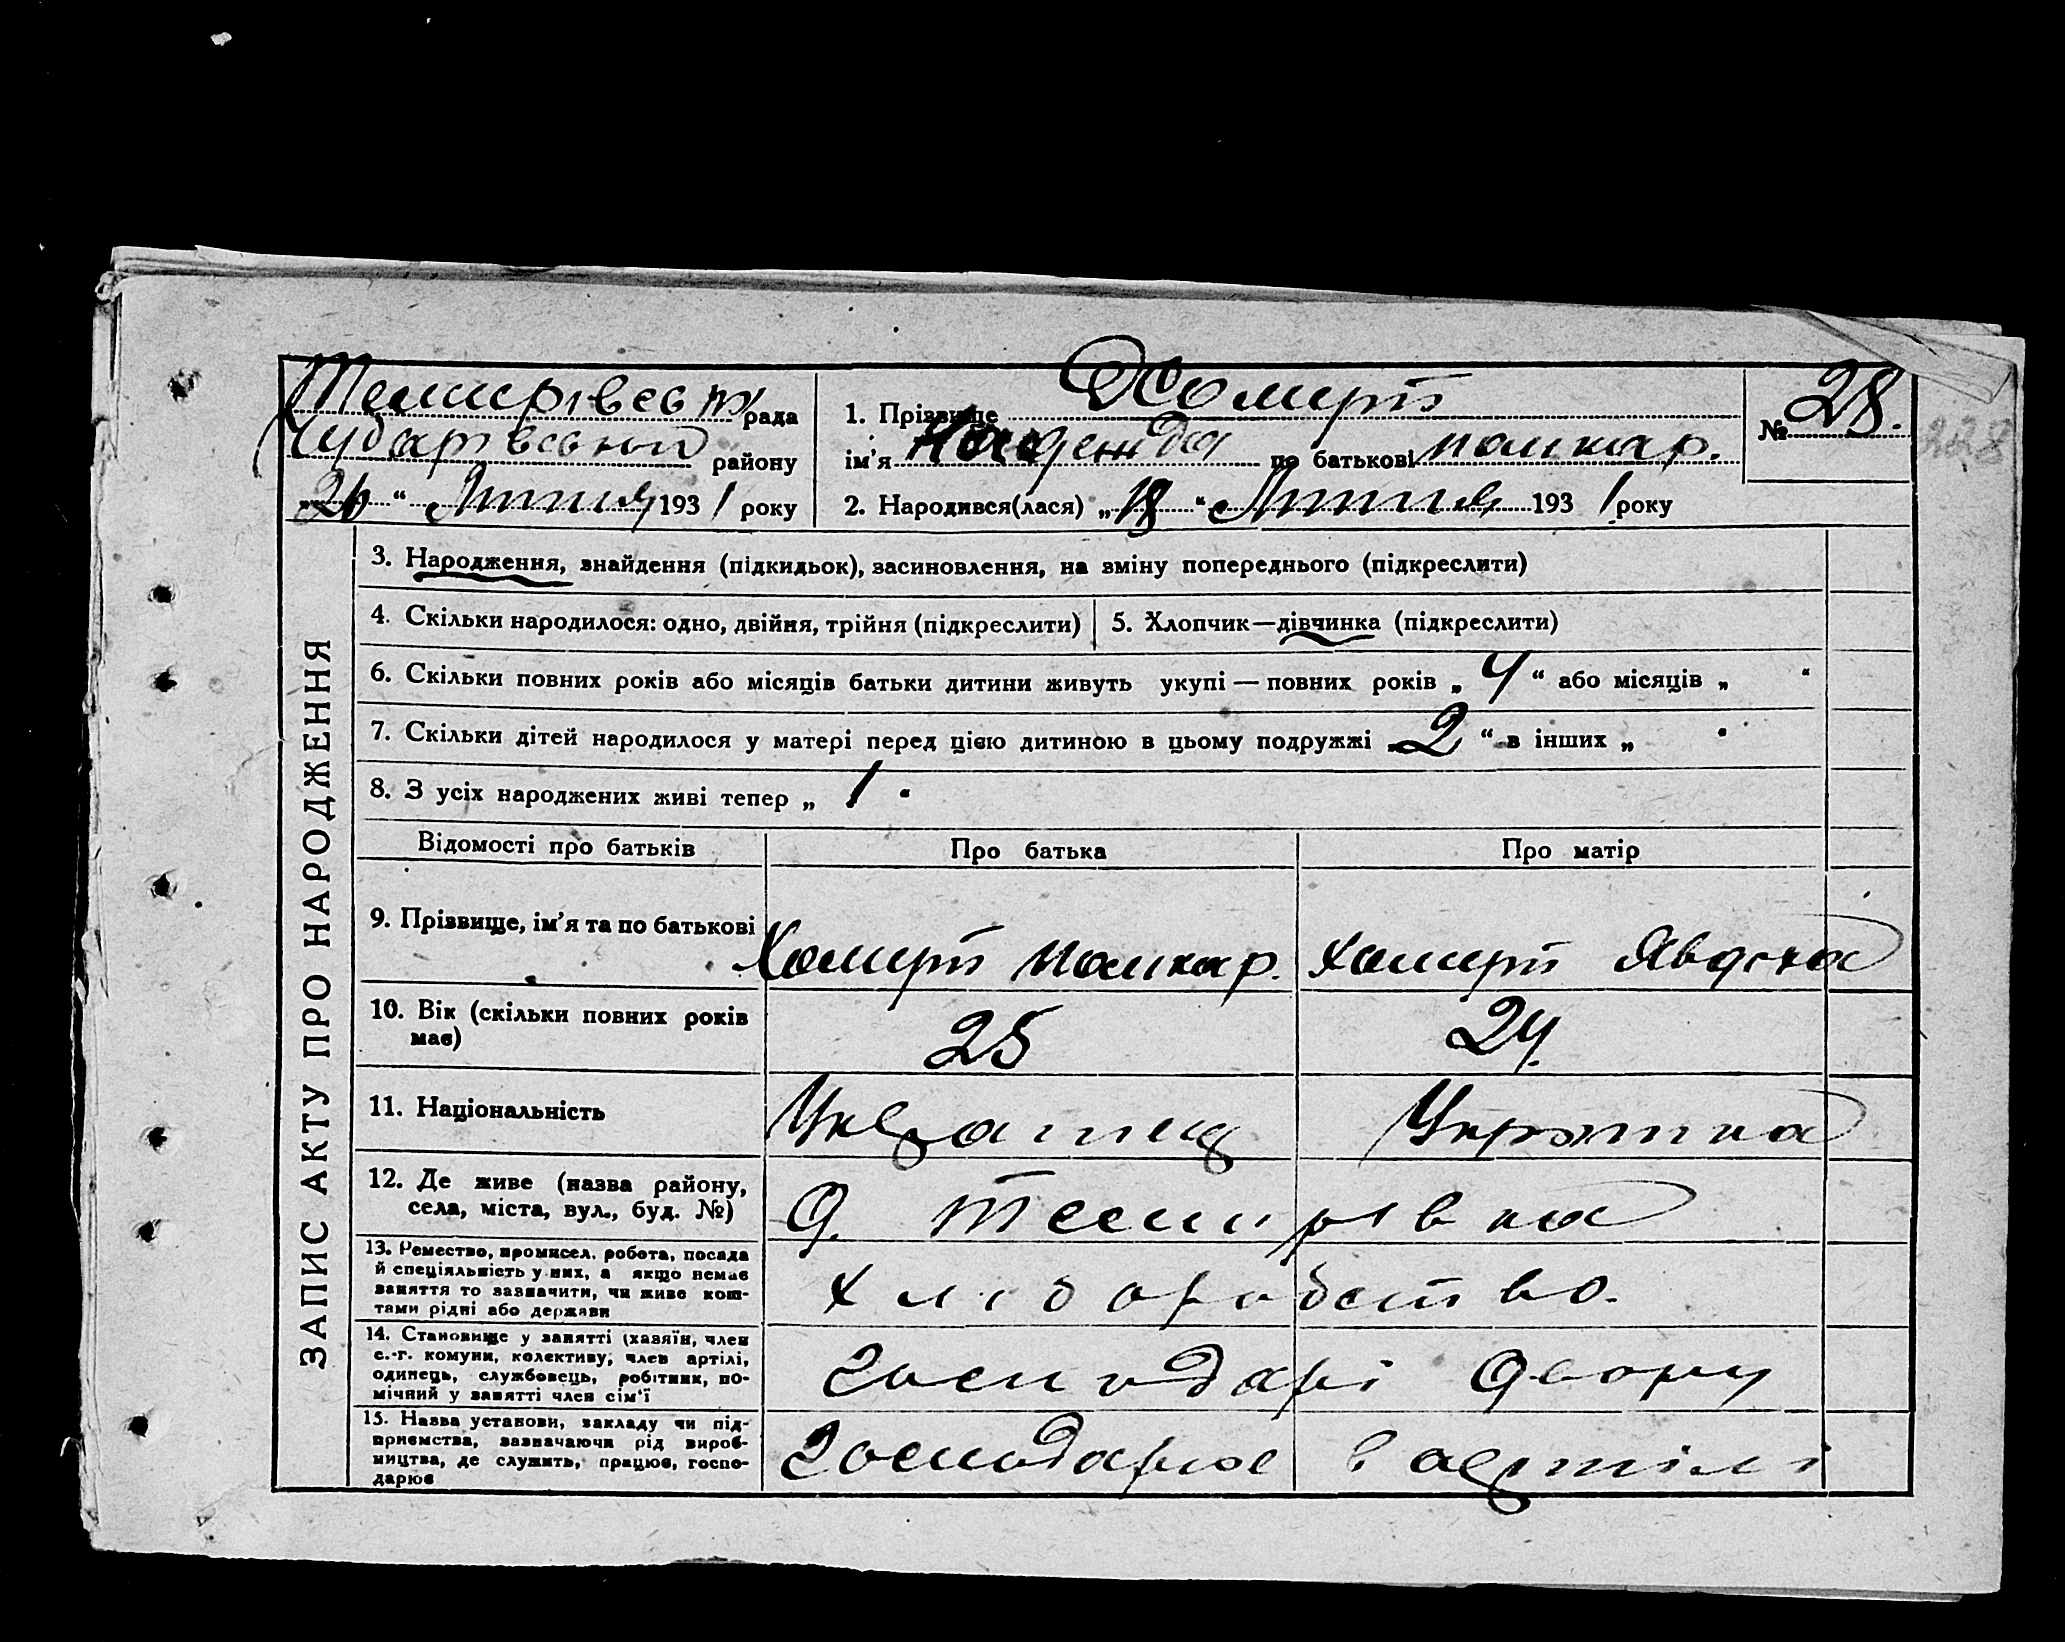 Темирівська рада
Чубарівський району
„26“ Липня 1931 року
1. Прізвище Хомерт
ім’я Надежда по батькові панкар.
2. Народився(лася) „18“ Липня 1931 року
№ 28.
228
ЗАПИС АКТУ ПРО НАРОДЖЕННЯ
3. Народження, знайдення (підкидьок), засиновлення, на зміну попереднього (підкреслити)
4. Скільки народилося: одно, двійня, трійня (підкреслити)
5. Хлопчик—дівчинка (підкреслити)
6. Скільки повних років або місяців батьки дитини живуть укупі — повних років „4“ або місяців „ “
7. Скільки дітей народилося у матері перед цією дитиною в цьому подружжі „2“ в інших „ “
8. З усіх народжених живі тепер „1“
Відомості про батьків Про батька Про матір
9. Прізвище, ім’я та по батькові
Хомерт панкар. Хомерт Явдоха
10. Вік (скільки повних років
має)
25 24.
11. Національність
Україпец Українка
12. Де живе (назва району,
села, міста, вул., буд. №)
с. Темирівка
13. Ремество, промисел, робота, посада
й спеціяльність у них, а якщо немає
заняття то зазначити, чи живе кош-
тами рідні або держави
хліборобство.
14. Становище у занятті (хазяїн, член
с.-г. комуни, колективу, член артілі,
одинець, службовець, робітник, по-
мічний у занятті член сім’ї
господарі двору
15. Назва установи, закладу чи під-
приємства, зазначаючи рід вироб-
ництва, де служить, працює, госпо-
дарює
Господарює в артілі